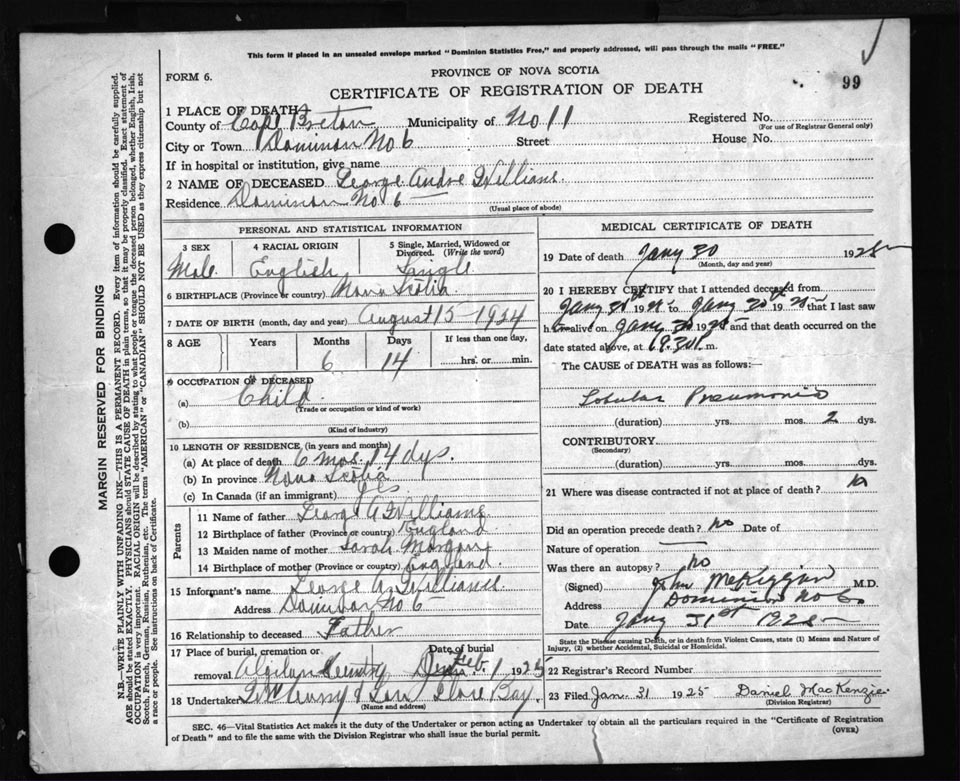 This form if placed in an unsealed envelope marked "Dominion Statistics Free," and properly addressed, will pass through the mails "FREE."
FORM 6.
PROVINCE OF NOVA SCOTIA
99
CERTIFICATE OF REGISTRATION OF DEATH
1 PLACE OF DEATH
County of Cape Breton Municipality of No 11 Registered No.
(For use of Registrar General only)
City or Town Dominion No 6 Street House No.
If in hospital or institution, give name
2 NAME OF DECEASED George Andre Williams
Residence Dominion No 6
(Usual place of abode)
PERSONAL AND STATISTICAL INFORMATION
3 SEX 4 RACIAL ORIGIN 5 Single, Married, Widowed or Divorced. (Write the word)
Male English Single
6 BIRTHPLACE (Province or country) Nova Scotia
7 DATE OF BIRTH (month, day and year) August 15 - 1924
8 AGE Years Months Days If less than one day,
6 14 hrs. or min.
9 OCCUPATION OF DECEASED
(a) Child
(Trade or occupation or kind of work)
(b)
(Kind of industry)
10 LENGTH OF RESIDENCE, (in years and months)
(a) At place of death 6 mos. 14 dys.
(b) In province Nova Scotia
(c) In Canada (if an immigrant) yes
Parents
11 Name of father George A Williams
12 Birthplace of father (Province or country) England
13 Maiden name of mother Sarah Morgan
14 Birthplace of mother (Province or country) England
15 Informant's name George A. Williams
Address Dominion No 6
16 Relationship to deceased Father
17 Place of burial, cremation or removal Date of burial
Feb. 1 1925
18 Undertaker & Son Glace Bay.
(Name and address)
MEDICAL CERTIFICATE OF DEATH
19 Date of death Jany 30 1925
(Month, day and year)
20 I HEREBY CERTIFY that I attended deceased from
Jany 30th 1925 to Jany 30th 1925 that I last saw
him alive on Jany 30 1925 and that death occurred on
date stated above, at m.
The CAUSE of DEATH was as follows:—
Lobular Pneumonia
(duration) yrs. mos. 2 dys.
CONTRIBUTORY
(Secondary)
(duration) yrs. mos. dys.
21 Where was disease contracted if not at place of death?
Did an operation precede death? no Date of
Nature of operation
Was there an autopsy? no
(Signed) John McKiggan M.D.
Address Dominion No 6
Date Jany 31st 1925
State the Disease causing Death, or in death from Violent Causes, state (1) Means and Nature of Injury, (2) whether Accidental, Suicidal or Homicidal.
22 Registrar's Record Number
23 Filed Jan. 31 1925 Daniel MacKenzie
(Division Registrar)
SEC. 46—Vital Statistics Act makes it the duty of the Undertaker or person acting as Undertaker to obtain all the particulars required in the "Certificate of Registration
of Death" and to file the same with the Division Registrar who shall issue the burial permit.
(OVER)
MARGIN RESERVED FOR BINDING
N.B.—WRITE PLAINLY WITH UNFADING INK—THIS IS A PERMANENT RECORD. Every item of information should be carefully supplied.
AGE should be stated EXACTLY. PHYSICIANS should STATE CAUSE OF DEATH in plain terms, so that it may be properly classified. Exact statement of
OCCUPATION is very important. RACIAL ORIGIN will be described by stating to what people or tongue the deceased person belonged, whether English, Irish,
Scotch, French, German, Russian, Ruthenian, etc. The terms "AMERICAN" or "CANADIAN" SHOULD NOT BE USED as they express citizenship but not
a race or people. See instructions on back of Certificate.